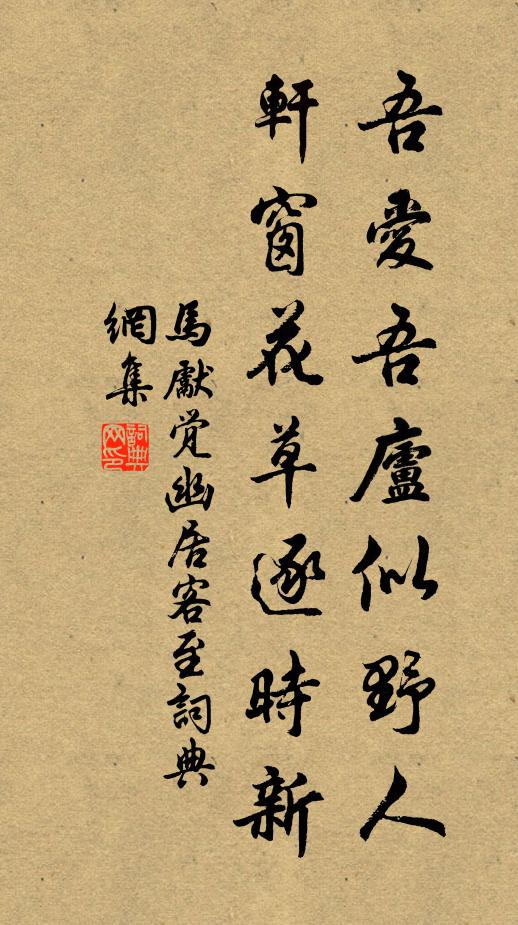 吾愛吾廬似野人
軒窗花草逐時新
馬獻覺幽居客至詞典
網集
詞典網印